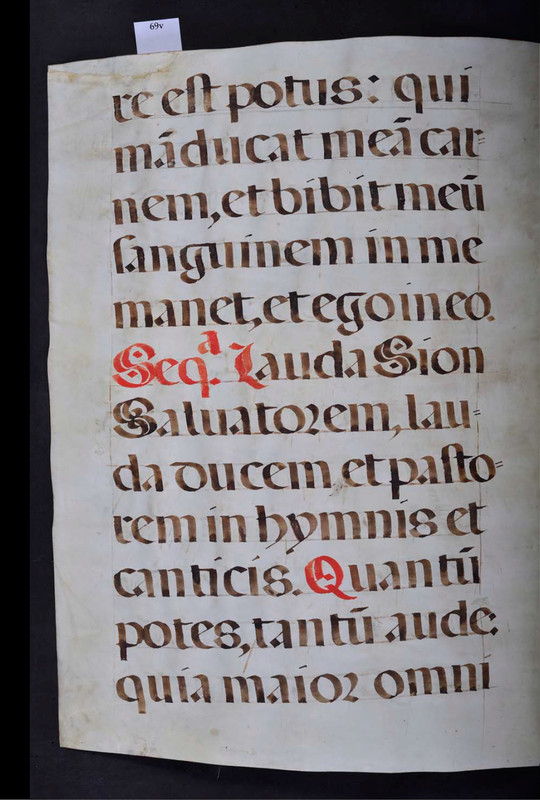 69v
re est potus: qui
mãducat meã car=
nem, et bibit meũ
sanguinem in me
manet, et ego in eo.
Seq.ᵃ Lauda Sion
Saluatorem, lau=
da ducem et pasto=
rem in hymnis et
canticis. Quantũ
potes, tantũ aude:
quia maior omni